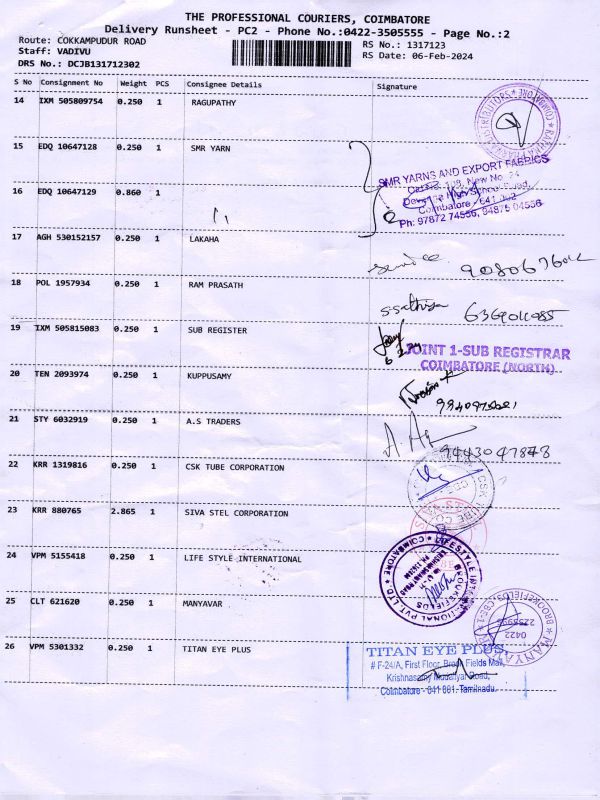 THE PROFESSIONAL COURIERS, COIMBATORE
Delivery Runsheet - PC2 - Phone No.:0422-3505555 - Page No.:2
Route: COKKAMPUDUR ROAD
RS No.: 1317123
Staff: VADIVU
RS Date: 06-Feb-2024
DRS No.: DCJB131712302
S No Consignment No Weight PCS Consignee Details Signature
14 IXM 505809754 0.250 1 RAGUPATHY
15 EDQ 10647128 0.250 1 SMR YARN
SMR YARNS AND EXPORT FABRICS
16 EDQ 10647129 0.860 1
Coimbatore - 641 002
Ph: 97872 74556, 94875 04556
17 AGH 530152157 0.250 1 LAKAHA
18 POL 1957934 0.250 1 RAM PRASATH
19 IXM 505815083 0.250 1 SUB REGISTER
JOINT 1-SUB REGISTRAR
COIMBATORE (NORTH)
20 TEN 2093974 0.250 1 KUPPUSAMY
21 STY 6032919 0.250 1 A.S TRADERS
9443047848
22 KRR 1319816 0.250 1 CSK TUBE CORPORATION
23 KRR 880765 2.865 1 SIVA STEL CORPORATION
24 VPM 5155418 0.250 1 LIFE STYLE INTERNATIONAL
25 CLT 621620 0.250 1 MANYAVAR
26 VPM 5301332 0.250 1 TITAN EYE PLUS
TITAN EYE PLUS,
# F-24/A, First Floor, Brook Fields Mall,
Krishnasamy Mudaliyar Road,
Coimbatore - 641 001. Tamilnadu.